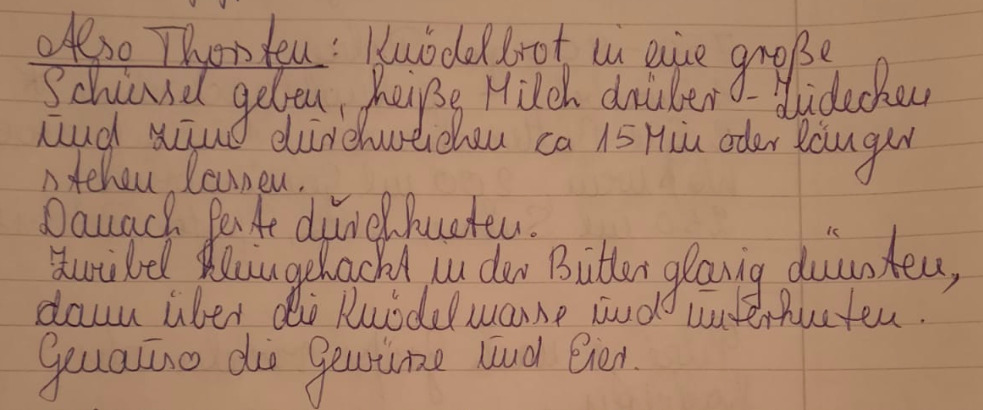 Also Thorsten: Knödelbrot in eine große
Schüssel geben, heiße Milch drüber - Zudecken
und zum durchweichen ca 15 Min oder länger
stehen lassen.
Danach feste durchkneten.
Zwiebel kleingehackt in der Butter glasig dünsten,
dann über die Knödelmasse und unterkneten.
Genauso die Gewürze und Eier.